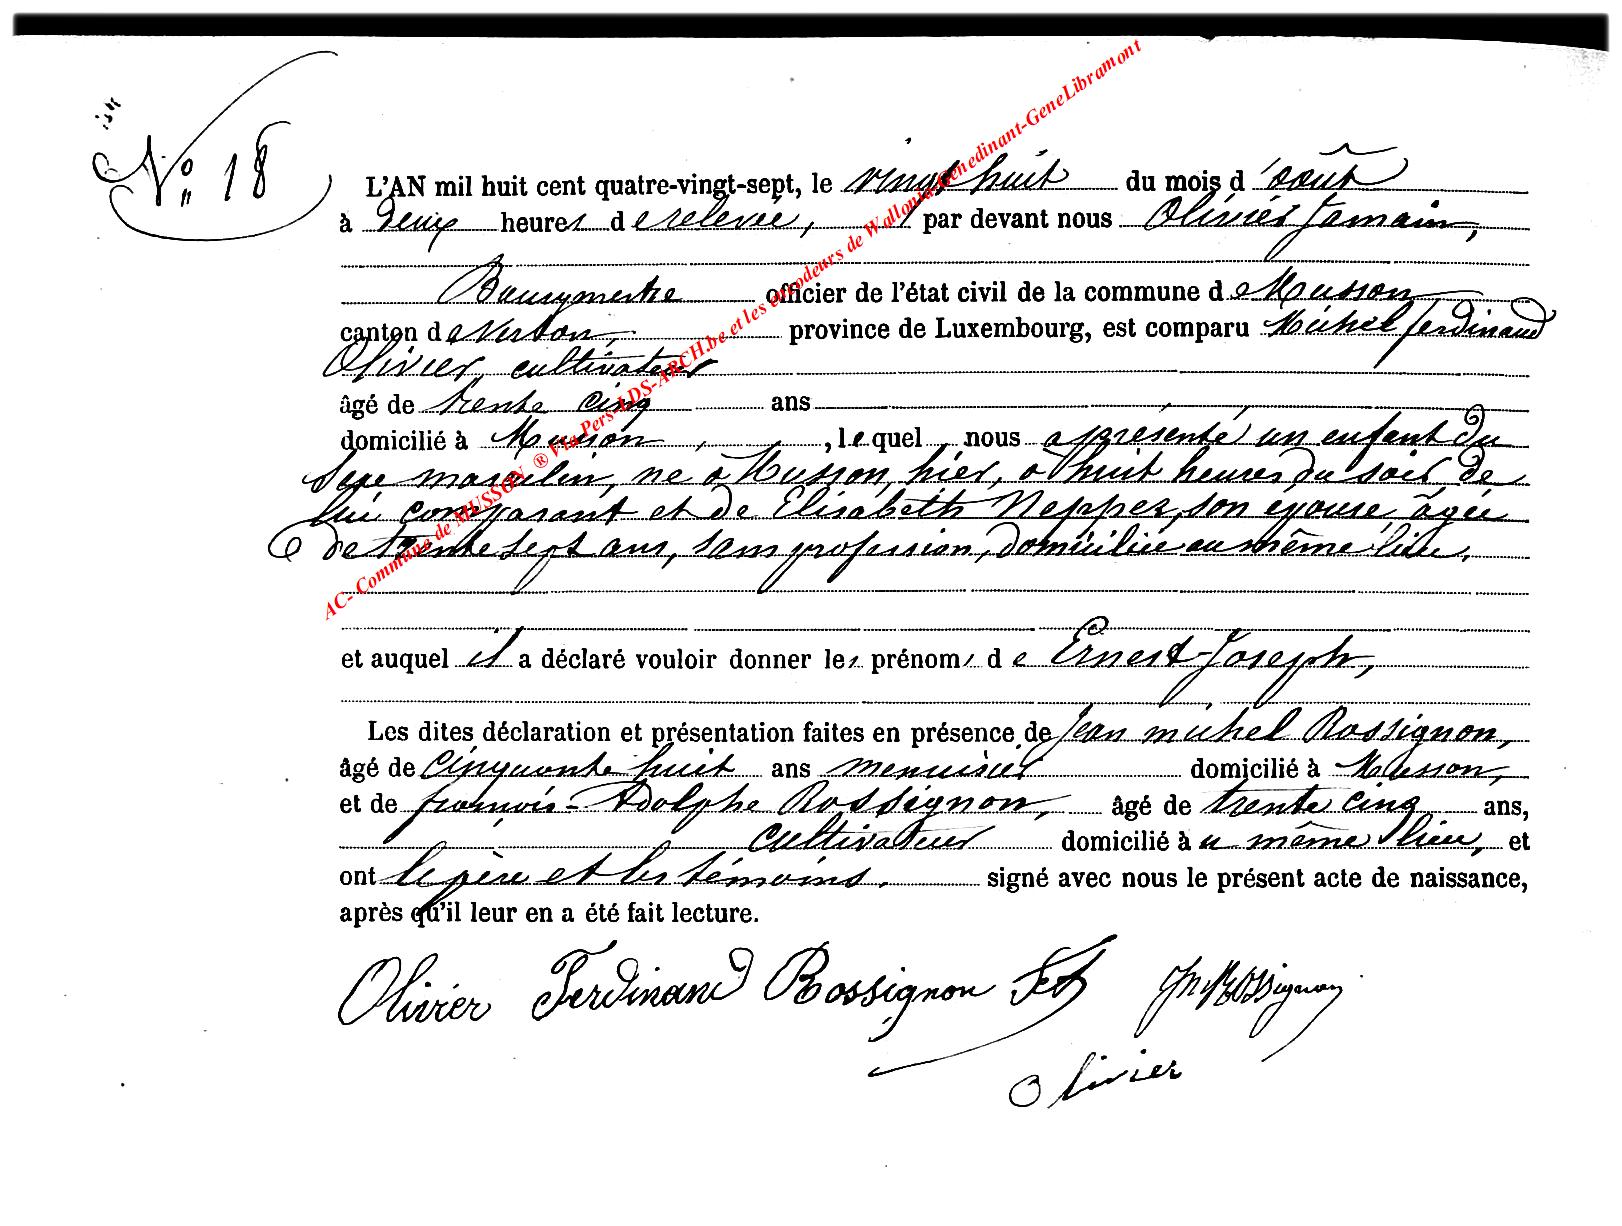 N° 18
L'AN mil huit cent quatre-vingt-sept, le vingt huit du mois d'août
à deux heures de relevée, par devant nous Olivier Jamain,
Bourgmestre officier de l'état civil de la commune de Musson
canton de Virton, province de Luxembourg, est comparu Michel Ferdinand
Olivier, cultivateur
âgé de trente cinq ans
domicilié à Musson, lequel nous a présenté un enfant du
sexe masculin, né à Musson, hier, à huit heures du soir, de
lui comparant et de Elisabeth Nepper, son épouse, âgée
de trente sept ans, sans profession, domiciliée au même lieu,
et auquel il a déclaré vouloir donner les prénoms de Ernest-Joseph,
Les dites déclaration et présentation faites en présence de Jean michel Rossignon,
âgé de cinquante huit ans menuisier domicilié à Musson,
et de françois-Adolphe Rossignon, âgé de trente cinq ans,
cultivateur domicilié au même lieu, et
ont le père et les témoins. signé avec nous le présent acte de naissance,
après qu'il leur en a été fait lecture.
Olivier Ferdinand Rossignon Rossignon
Olivier
AC- Commune de MUSSON ® Via Pers-LDS-ARCH.be et les encodeurs de Wallonia-Genedinant-GeneLibramont